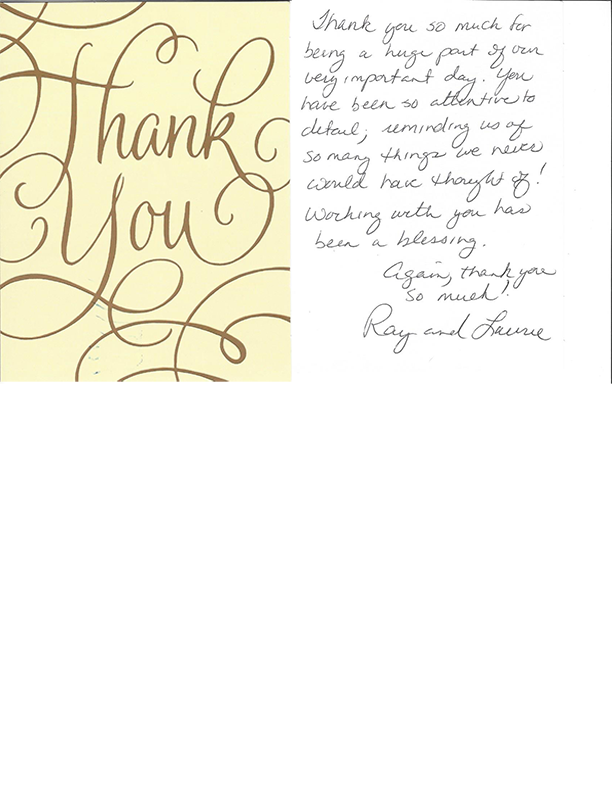 Thank
You
Thank you so much for
being a huge part of our
very important day. You
have been so attentive to
detail, reminding us of
so many things we never
would have thought of!
Working with you has
been a blessing.
Again, thank you
so much!
Ray and Laurie